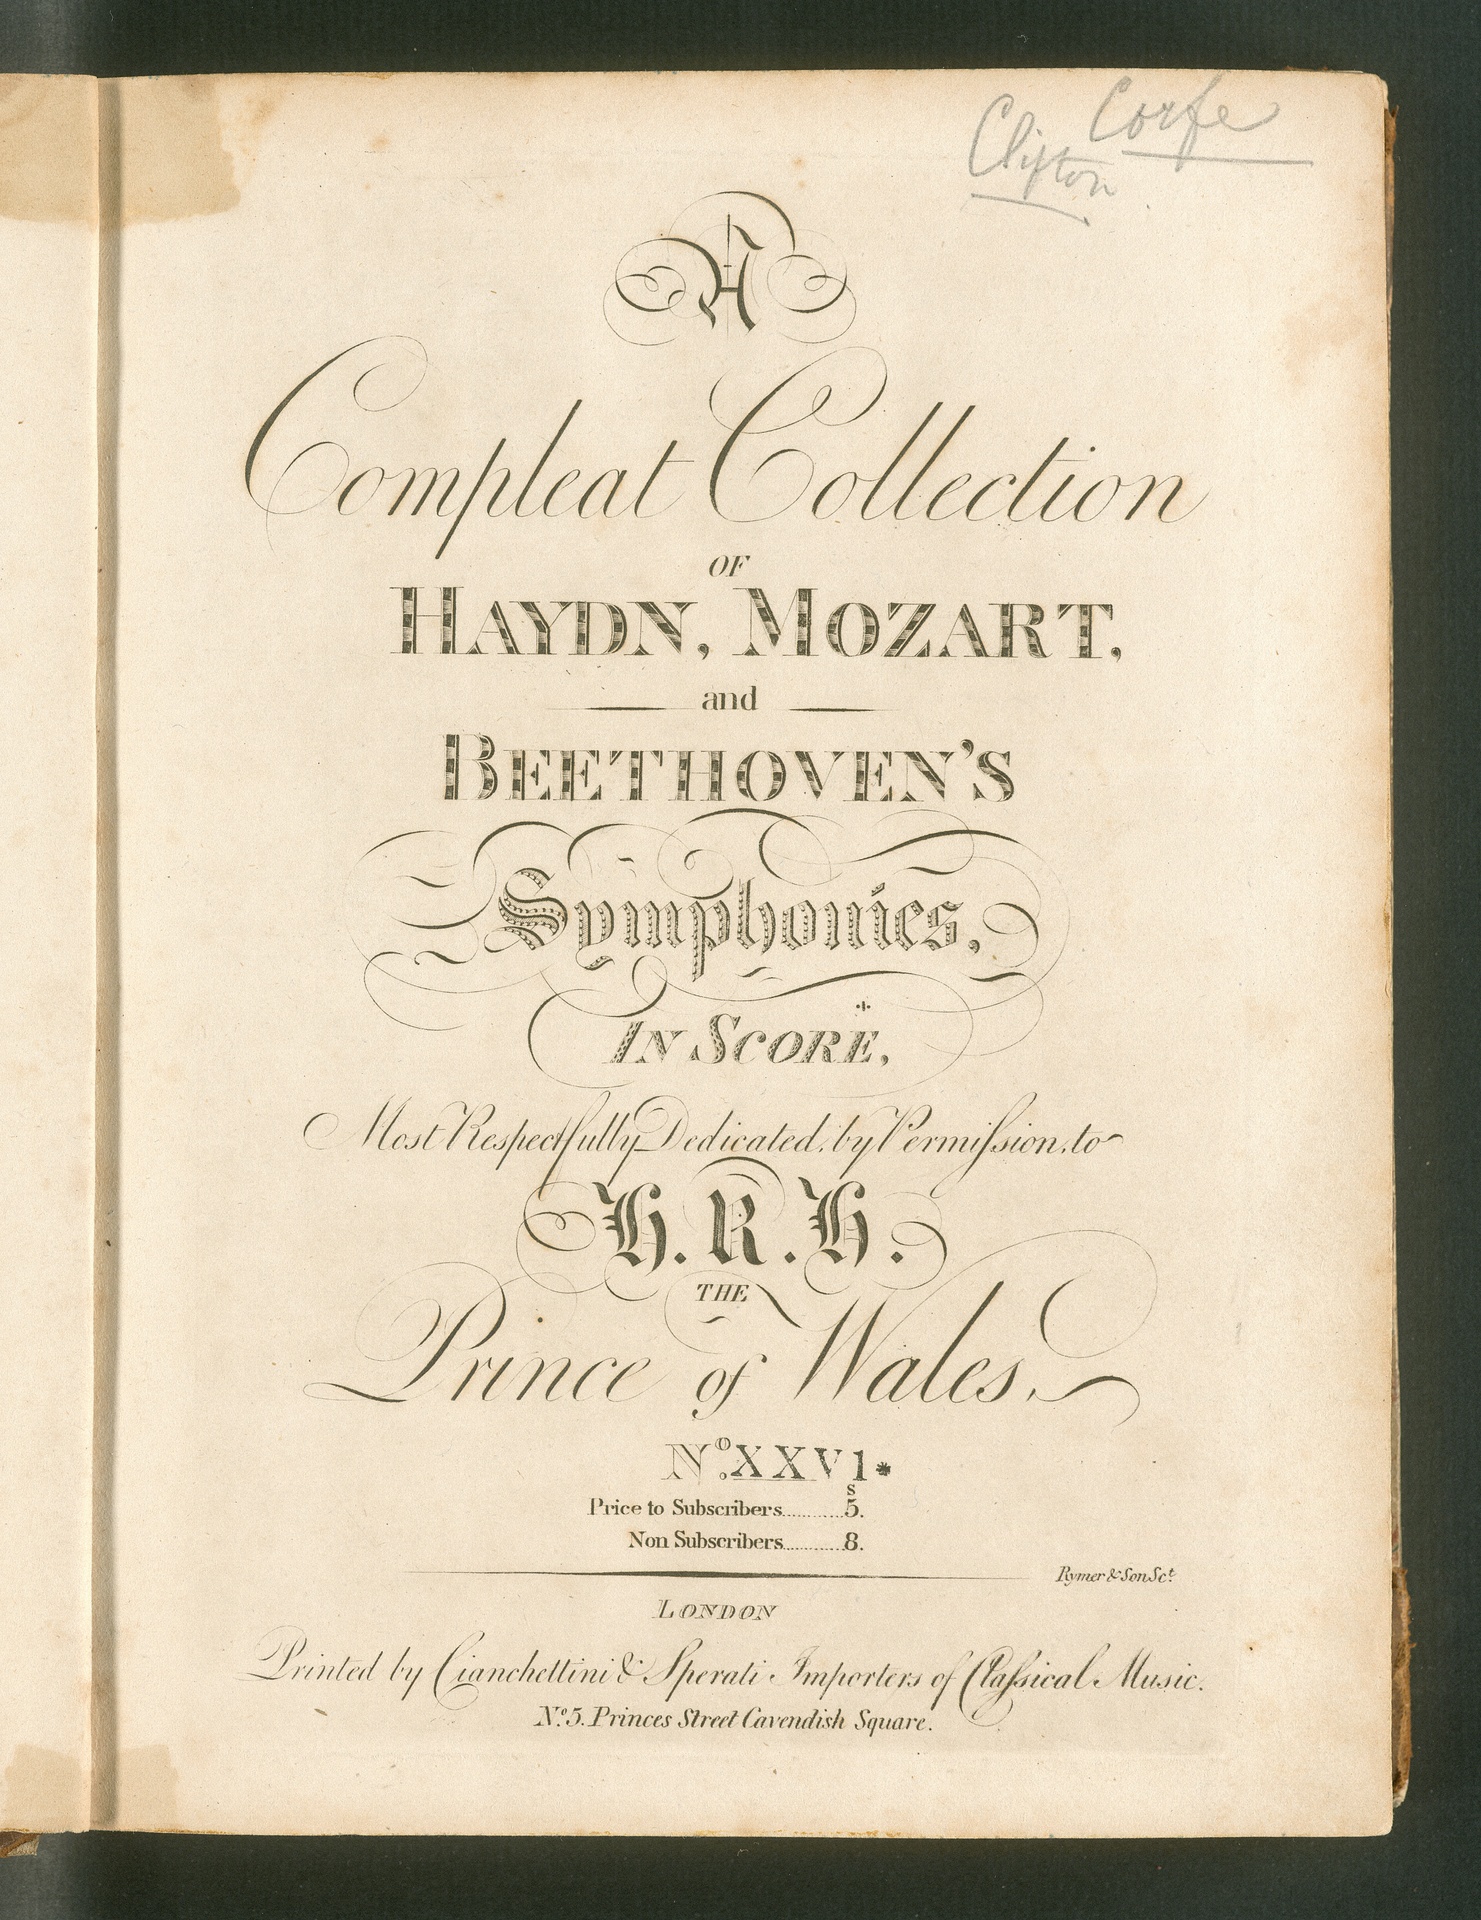 Corfe
Clifton
A
Compleat Collection
OF
HAYDN, MOZART,
and
BEETHOVEN'S
Symphonies,
IN SCORE,
Most Respectfully Dedicated, by Permiſsion, to
H. R. H.
THE
Prince of Wales,
No. XXVI*
s
Price to Subscribers............5.
Non Subscribers............8.
Rymer & Son Sct.
LONDON
Printed by Cianchettini & Sperati Importers of Claſsical Music.
No. 5. Princes Street Cavendish Square.